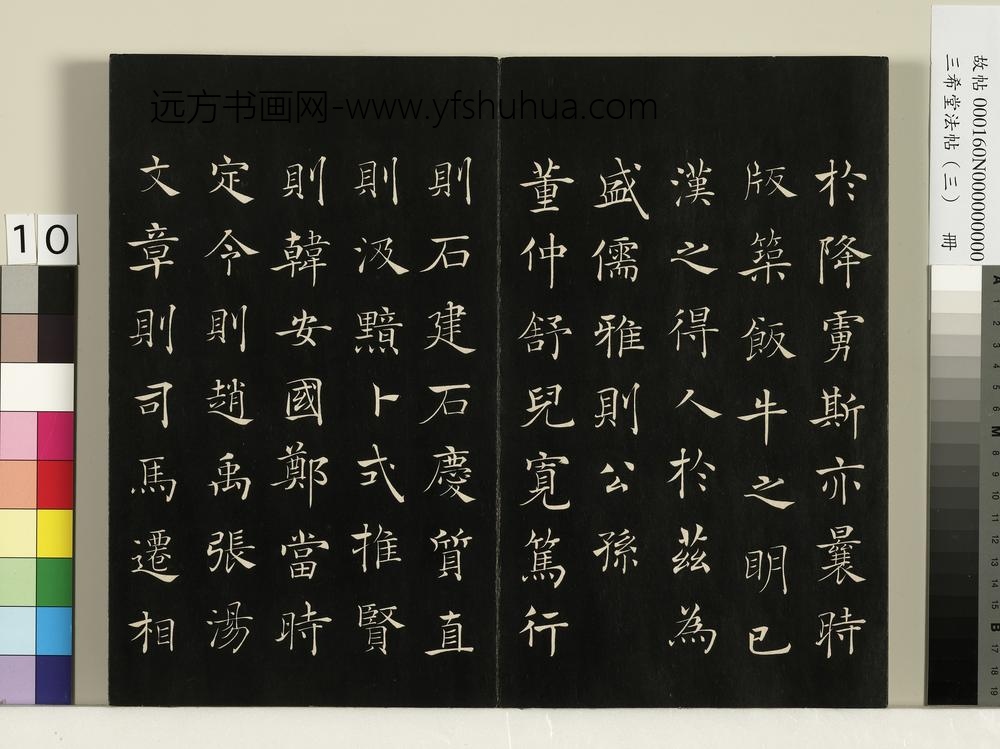 於降虜斯亦曩時
版築飯牛之明已
漢之得人於茲為
盛儒雅則公孫
董仲舒兒寛篤行
則石建石慶質直
則汲黯卜式推賢
則韓安國鄭當時
定令則趙禹張湯
文章則司馬遷相
远方书画网-www.yfshuhua.com
故帖 000160N000000000
三希堂法帖(三) 冊
10
A
1
2
3
4
5
6
M
8
9
10
11
12
13
14
15
B
17
18
19